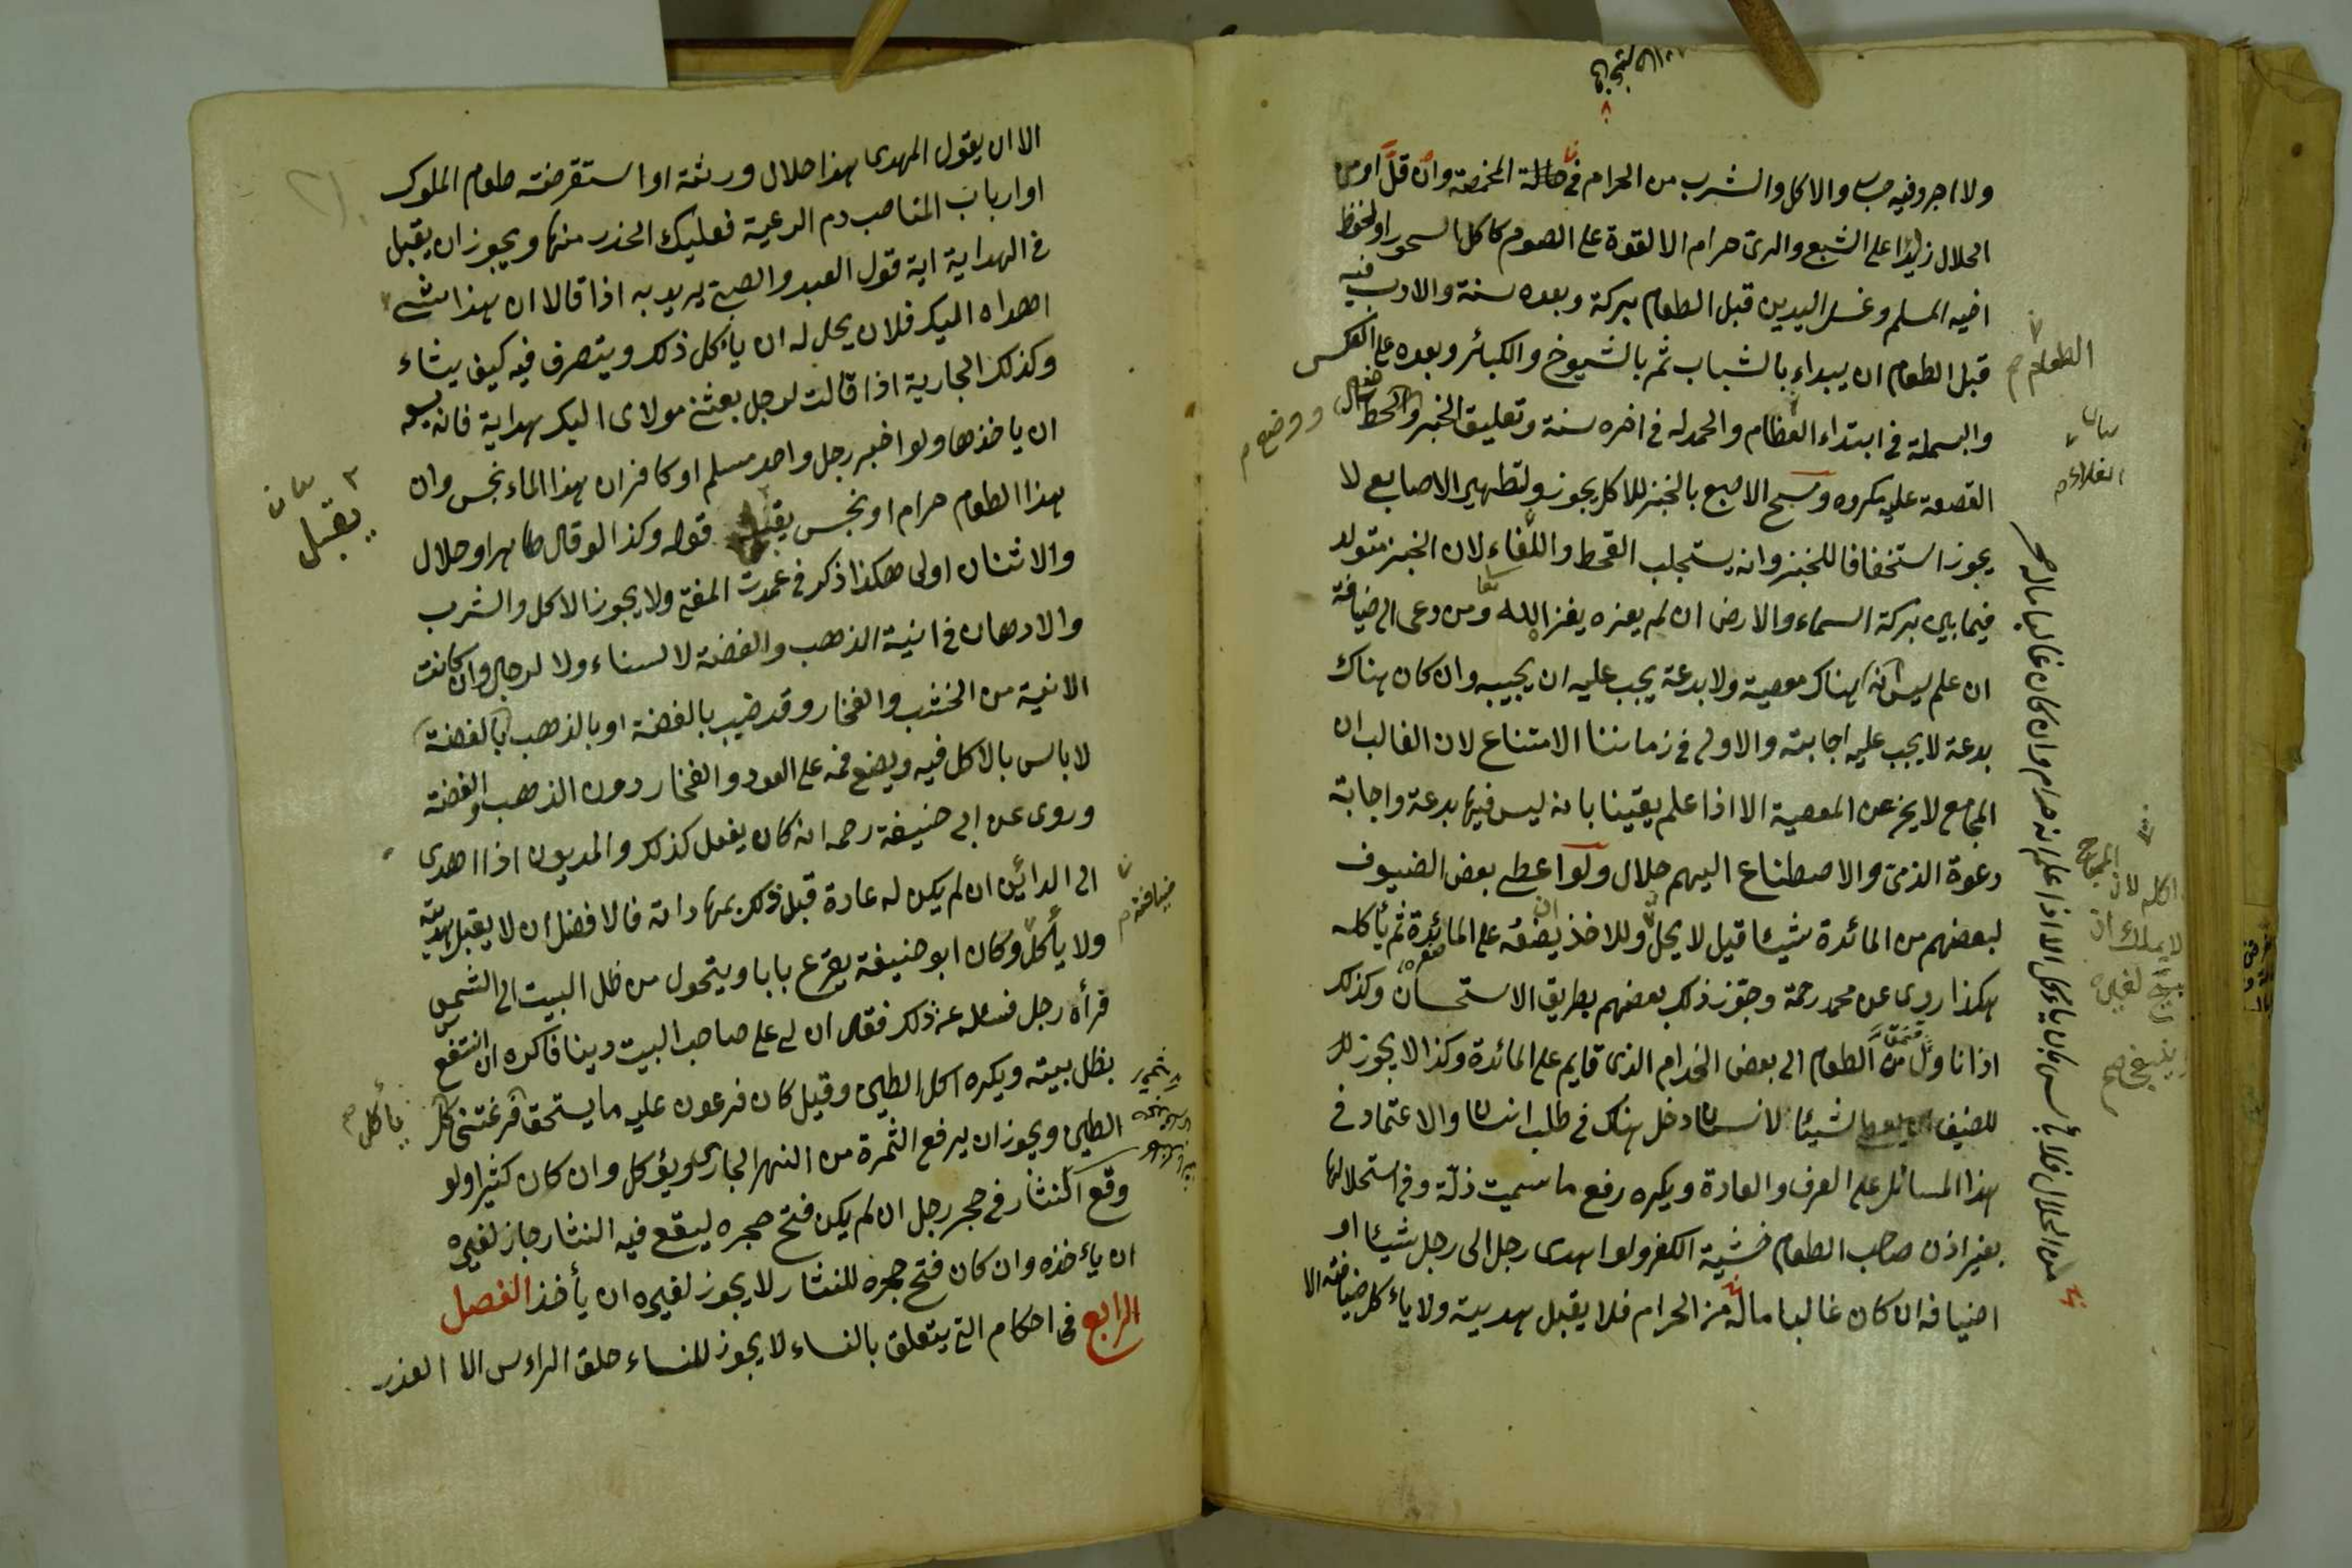 ولا اجر وفيه حساب والاكل والشرب من الحرام فى حالة المخمصة وان قل او من
الحلال زايدا على الشبع والرى حرام الا لقوة على الصوم كاكل السحور او لحفظ
اخيه المسلم وغسل اليدين قبل الطعام بركة وبعده سنة والادب فيه
قبل الطعام ان يبداء بالشباب ثم بالشيوخ والكبائر وبعده على العكس
والبسملة فى ابتداء الطعام والحمدله فى اخره سنة وتعليق الخبز
القصعة عليه مكروه ومسح الاصبع بالخبز للاكل يجوز ولتطهير الاصابع لا
يجوز استخفافا للخبز وانه يستجلب القحط والغلاء لان الخبز متولد
فيما بين بركة السماء والارض ان لم يعزه يغز الله ومن دعى الى ضيافة
ان علم ليس هناك معصية ولا بدعة يجب عليه ان يجيبه وان كان هناك
بدعة لا يجب عليه اجابته والاولى فى زماننا الامتناع لان الغالب ان
المجامع لا يخ عن المعصية الا اذا علم يقينا بانه ليس فيها بدعة واجابة
دعوة الذمى والاصطناع اليهم حلال ولو اعطى بعض الضيوف
لبعضهم من المائدة شيئا قيل لا يحل وللاخذ ان يضعه على المائدة ثم يأكله
هكذا روى عن محمد رحمه وجوز ذلك بعضهم بطريق الاستحسان وكذلك
اذا ناول من الطعام الى بعض الخدام الذى قايم على المائدة وكذا لا يجوز
للضيف شيئا لانسان دخل هناك فى طلب انسان والاعتماد فى
هذا المسائل على العرف والعادة ويكره رفع ما سميت ذلة وفى استحلالها
بغير اذن صاحب الطعام خشية الكفر ولو اهدى رجل الى رجل شيئا او
اضيافه ان كان غالبا ماله من الحرام فلا يقبل هديته ولا يأكل ضيافته الا
الطعام
الغلاء
ووضع
اكله لان المباح
لا يملك ان
لغيره
من الحلال فلا بأس بان يأكل الا اذا علم انه حرام وان كان غالبا ماله
الا ان يقول المهدى هذا حلال ورثته او استقرضته طعام الملوك
او ارباب المناصب دم الرعية فعليك الحذر منها ويجوز ان يقبل
فى الهداية اية قول العبد والصبى يريد به اذا قالا ان هذا شئ
اهداه اليك فلان يحل له ان يأكل ذلك ويتصرف فيه كيف يشاء
وكذلك الجارية اذا قالت لرجل بعثنى مولاى اليك هداية فانه يسع
ان ياخذها ولو اخبر رجل واحد مسلم او كافر ان هذا الماء نجس وان
هذا الطعام حرام او نجس يقبل قوله وكذا لو قال طاهر او حلال
والاثنان اولى هكذا ذكر فى عمدت المفتى ولا يجوز الاكل والشرب
والادهان فى انية الذهب والفضة لا لنساء ولا لرجال وان كانت
الانية من الخشب والفخار وقد ضيب بالفضة او بالذهب بالفضة
لا باس بالاكل فيه ويضع فمه على العود والفخار دون الذهب والفضة
وروى عن ابى حنيفة رحمه انه كان يفعل كذلك والمديون اذا اهدى
الى الدائن ان لم يكن له عادة قبل ذلك بمهاداته فالافضل ان لا يقبل هديته
ولا يأكل وكان ابو حنيفة يقرع بابا ويتحول من ظل البيت الى الشمس
فرأه رجل فسأله عن ذلك فقال ان لى على صاحب البيت دينا فاكره ان انتفع
بظل بيته ويكره اكل الطين وقيل كان فرعون عليه ما يستحق
الطين ويجوز ان يرفع الثمرة من النهر الجارى ويؤكل وان كان كثيرا ولو
وقع النثار فى حجر رجل ان لم يكن فتح حجره ليقع فيه النثار جاز لغيره
ان يأخذه وان كان فتح حجره للنثار لا يجوز لغيره ان يأخذ الفصل
الرابع فى احكام التى يتعلق بالنساء لا يجوز للنساء حلق الراءس الا العذر
يقبل
ضيافته
يأكل